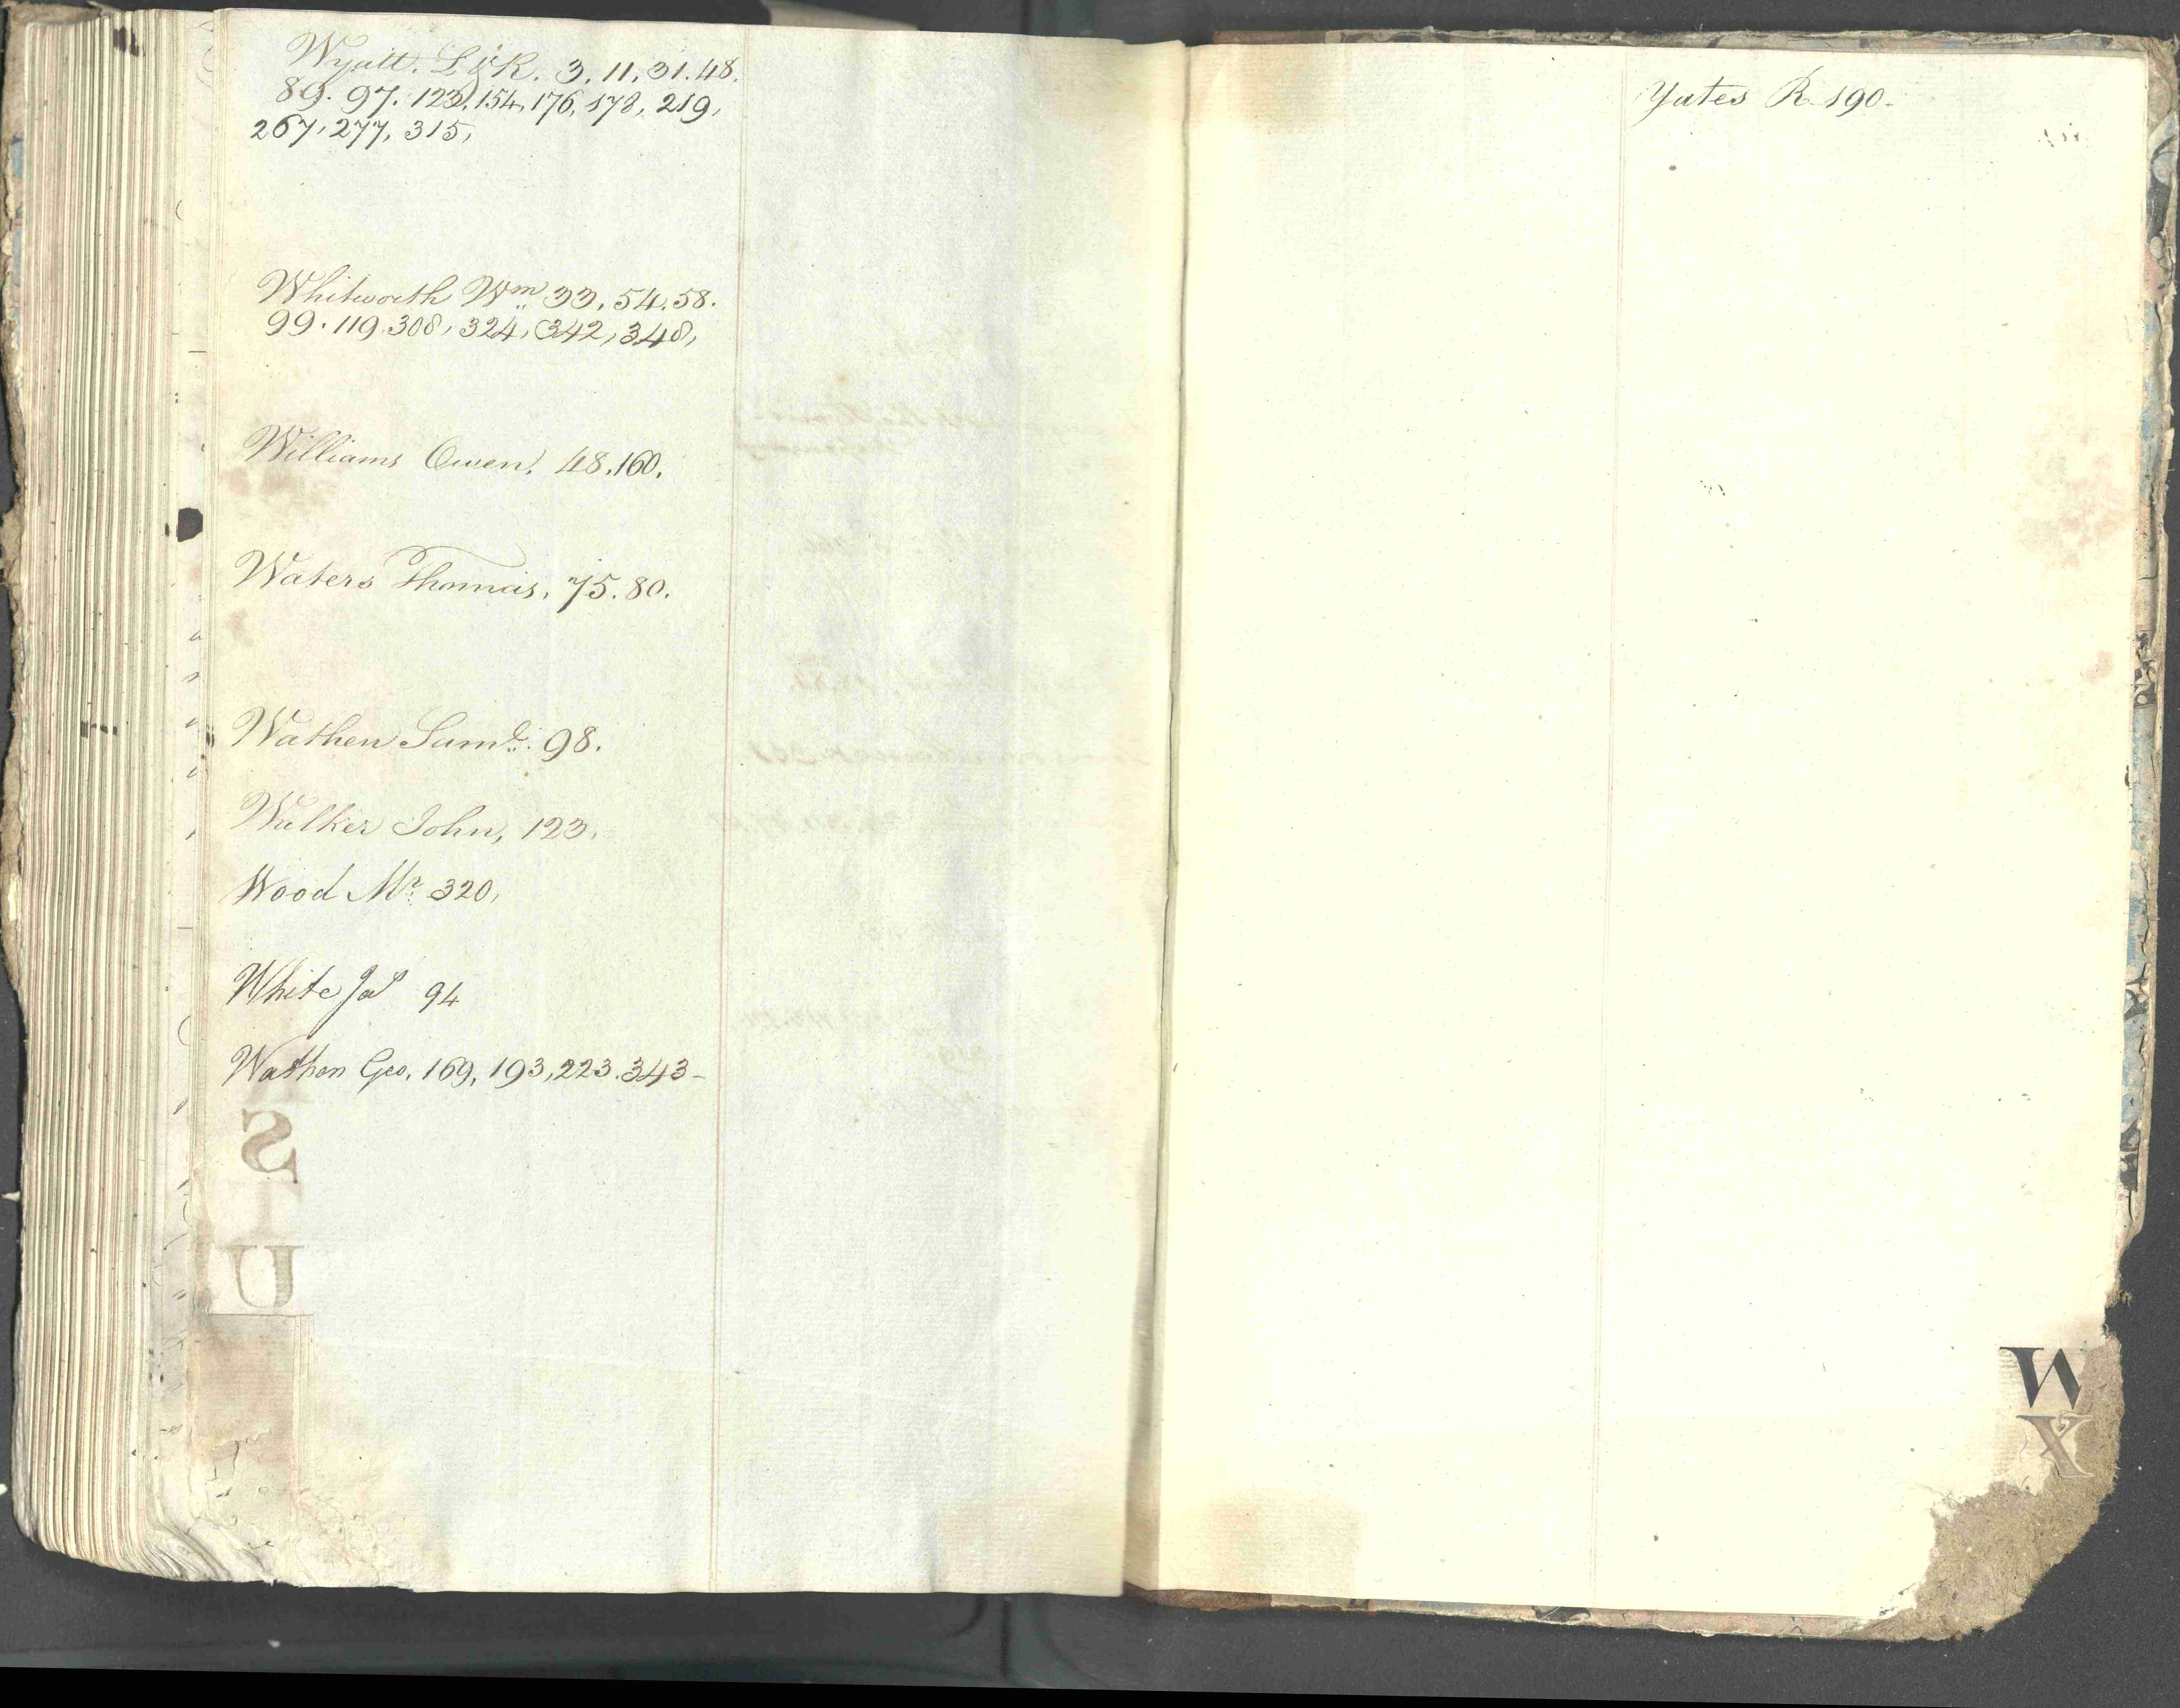 Wyatt. L & R. 3. 11. 31. 48.
89. 97. 123. 154, 176, 178, 219,
267, 277, 315,
Whitworth Wm 33. 54. 58.
99. 119. 308, 324, 342, 348,
Williams Owen. 48. 160.
Waters Thomas, 75. 80.
Wathen Saml. 98.
Walker John, 123.
Wood Mr. 320,
White Jas 94
Wathen Geo, 169, 193, 223. 343-
S
T
U
Yates R. 190-
W
X